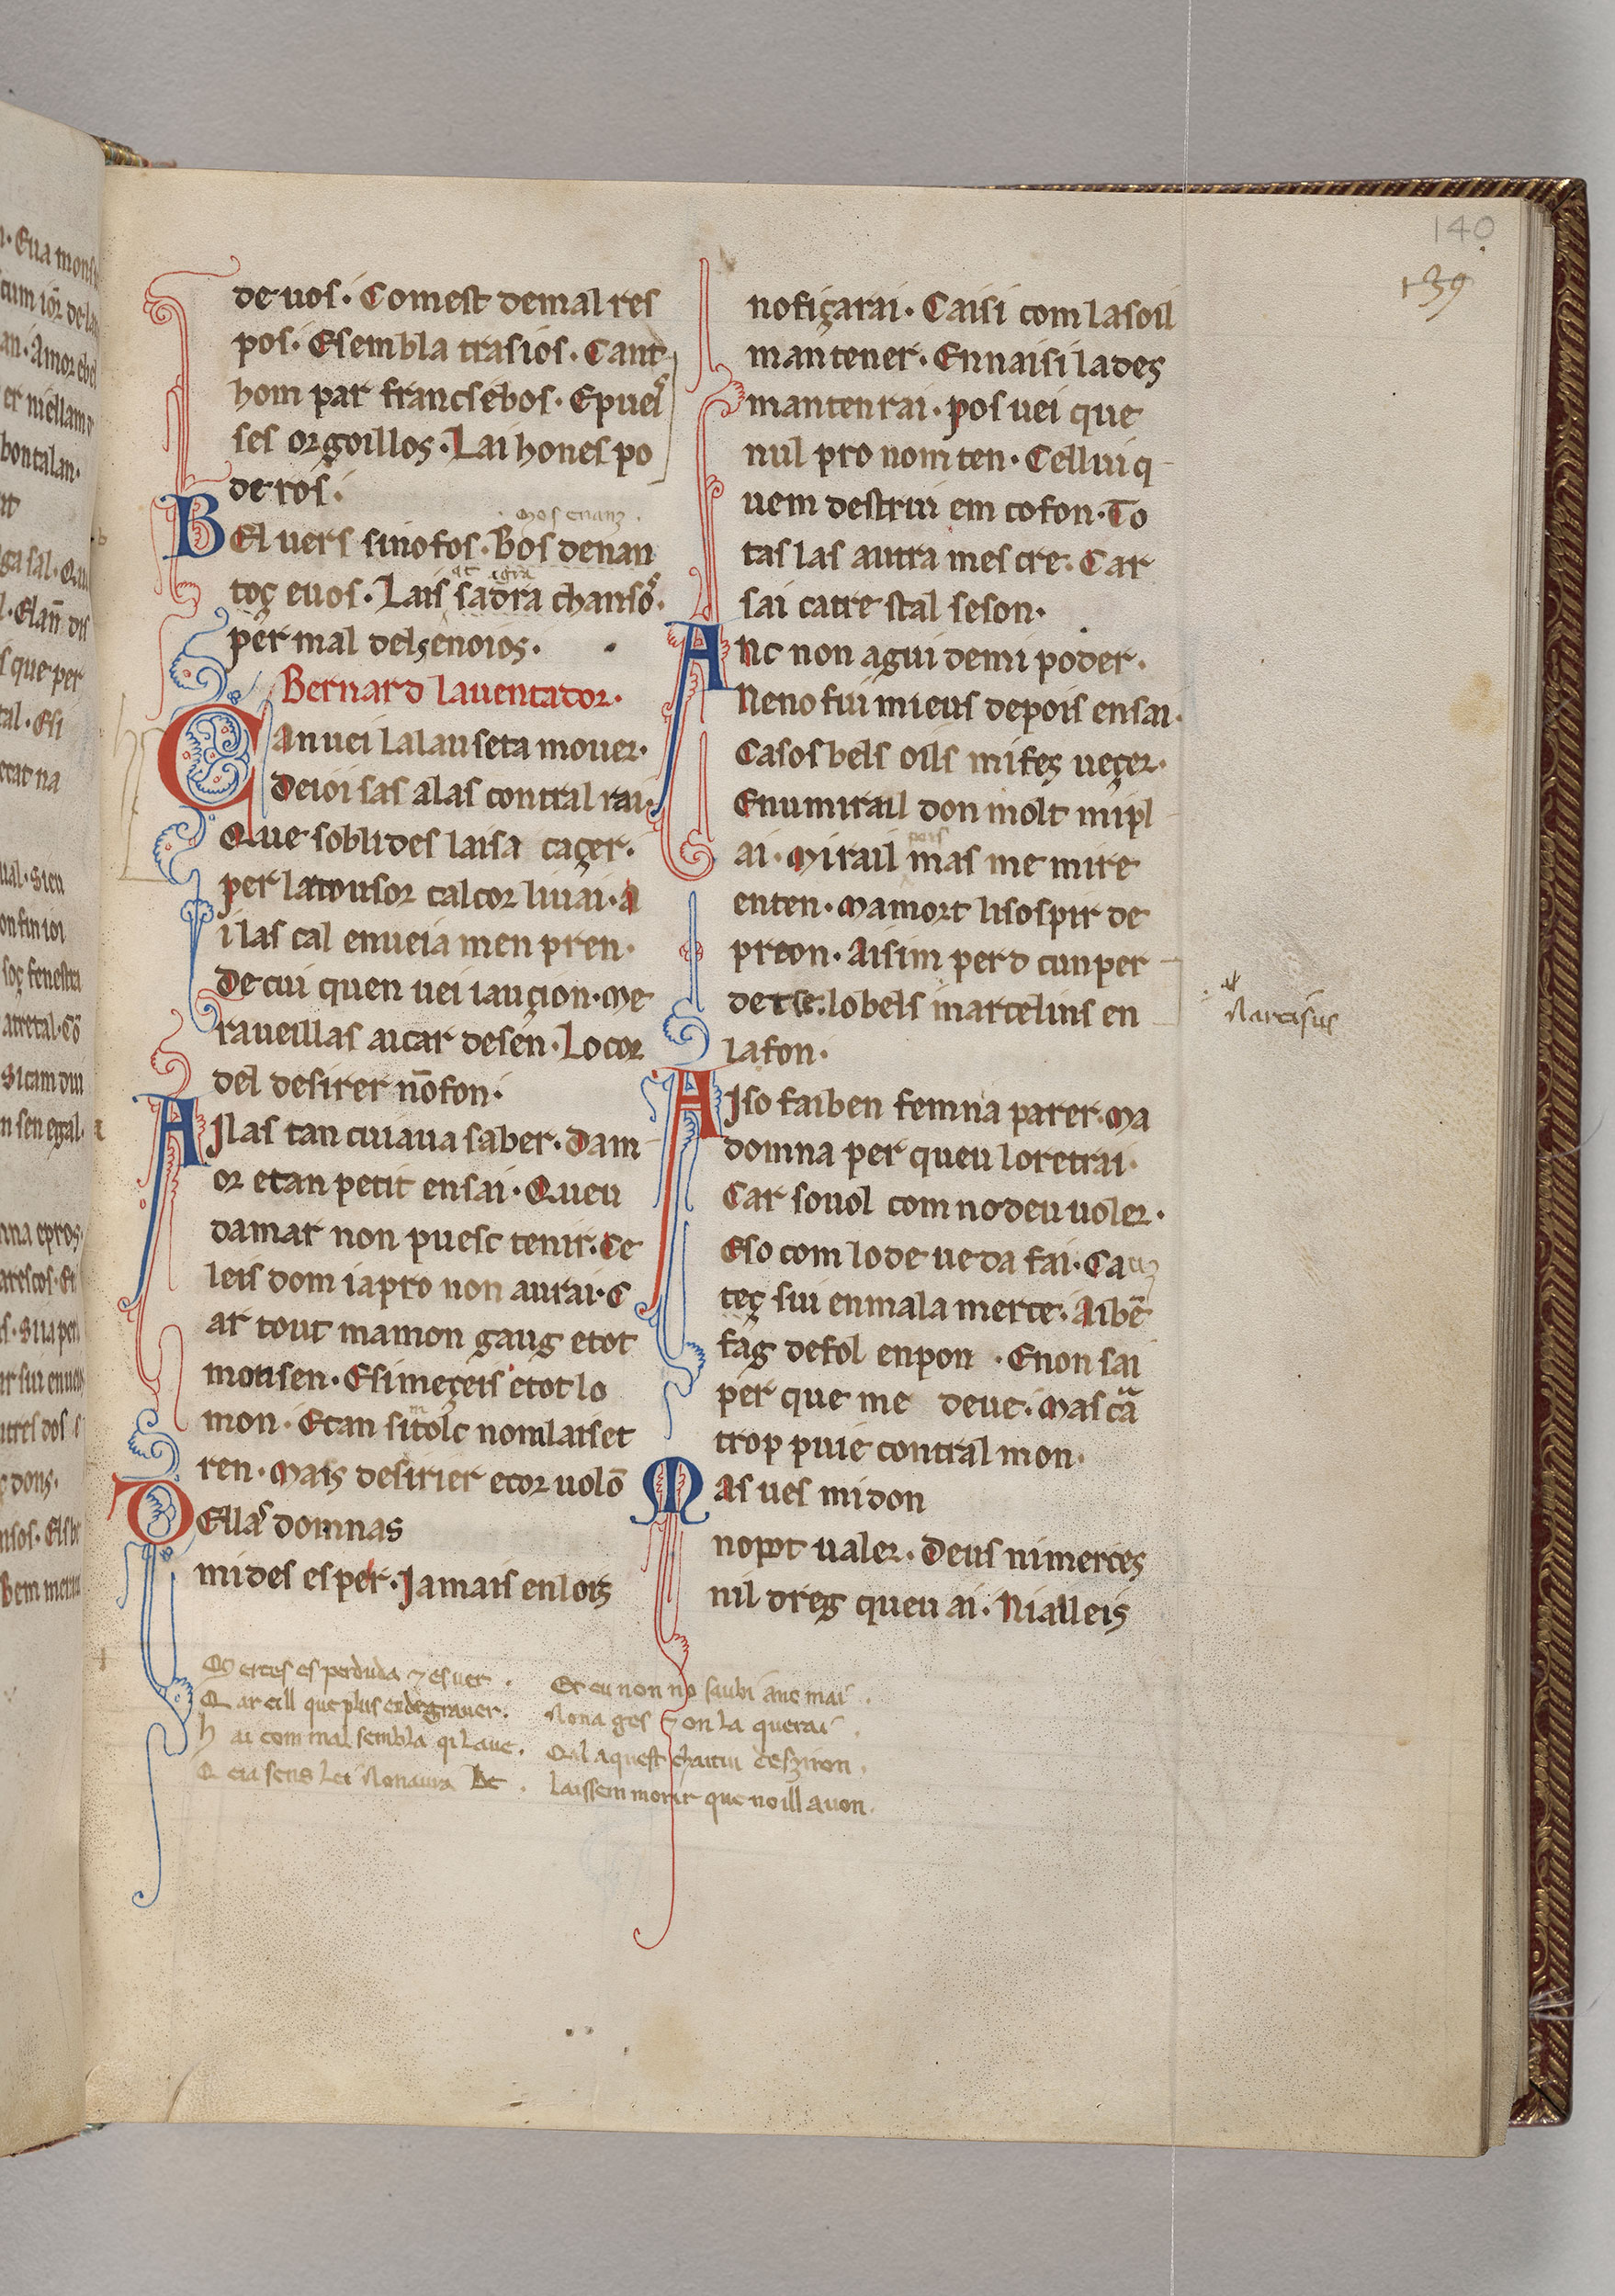 140
139
de uos · Comest demal res
pos · Esembla trasios · Cant
hom par francsebos · Epueis
ses orgoillos · Lai hones po
deros ·
mos enanz
BEl uers sinofos · Bos denan
at egra
toç euos · Lais sadra chansōs ·
per mal dels enoios ·
Bernard lauentador ·
CAnuei lalauseta mouer ·
Deioi sas alas contral rai ·
Que soblides laisa caçer ·
per la dousor calcor liuai · a
i las cal enueia men pren ·
De cui quen uei iauçion · Me
raueillas aicar desen · Locor
del desirer nōfon ·
AJlas tan cuiaua saber · Dam
or etan petit ensai · Queu
damar non puesc tenir · Ce
leis dom iapro non aurai · C
ar tout mamon gaug etot
mon sen · Esimeçeis etot lo
m
mon · Ecan sitolc nomlaiset
ren · Mais desirier ecor uolō
DEllas domnas
mi des esper · Jamais enlors
nofiçarai · Caisi com lasoil
mantener · Ennaisi lades
mantenrai · pos uei que
nul pro nomten · Cellui q
uem destrui em cofon · To
tas las autra mescre · Car
sai catrestal seson ·
ANc non agui demi poder ·
Neno fui mieus depois ensai ·
Casos bels oils mifeç ueçer ·
Enumirail don molt mipl
pois
ai · Mirail mas me mire
enten · Mamort lisospir de
preon · Aisim perd cunper
de se · lobels marcelius en
Narcisus
lafon ·
AJso faiben femna parer · Ma
domna per queu loretrai ·
Car souol com nodeu uoler ·
Eso com lode ueda fai · Ca
teç sui enmala merce · Aibē
fag defol enpon · Enon sai
per que me deue · Mas ca
trop puie contral mon ·
MAs ues midon
nopot ualer · Deus nimerces
nil dreg queu ai · Nialleis
Merces es perduda ⁊ es uer ·
Qar cill que plus en degrauer ·
h ai com mal sembla qi laue ·
Q eia sens lei Nonaura be ·
Et eu non no saubi anc mai ·
Nona ges ⁊ on la querai ·
Qal aquest chaitiu desziron ·
Laissem morir que noill auon ·